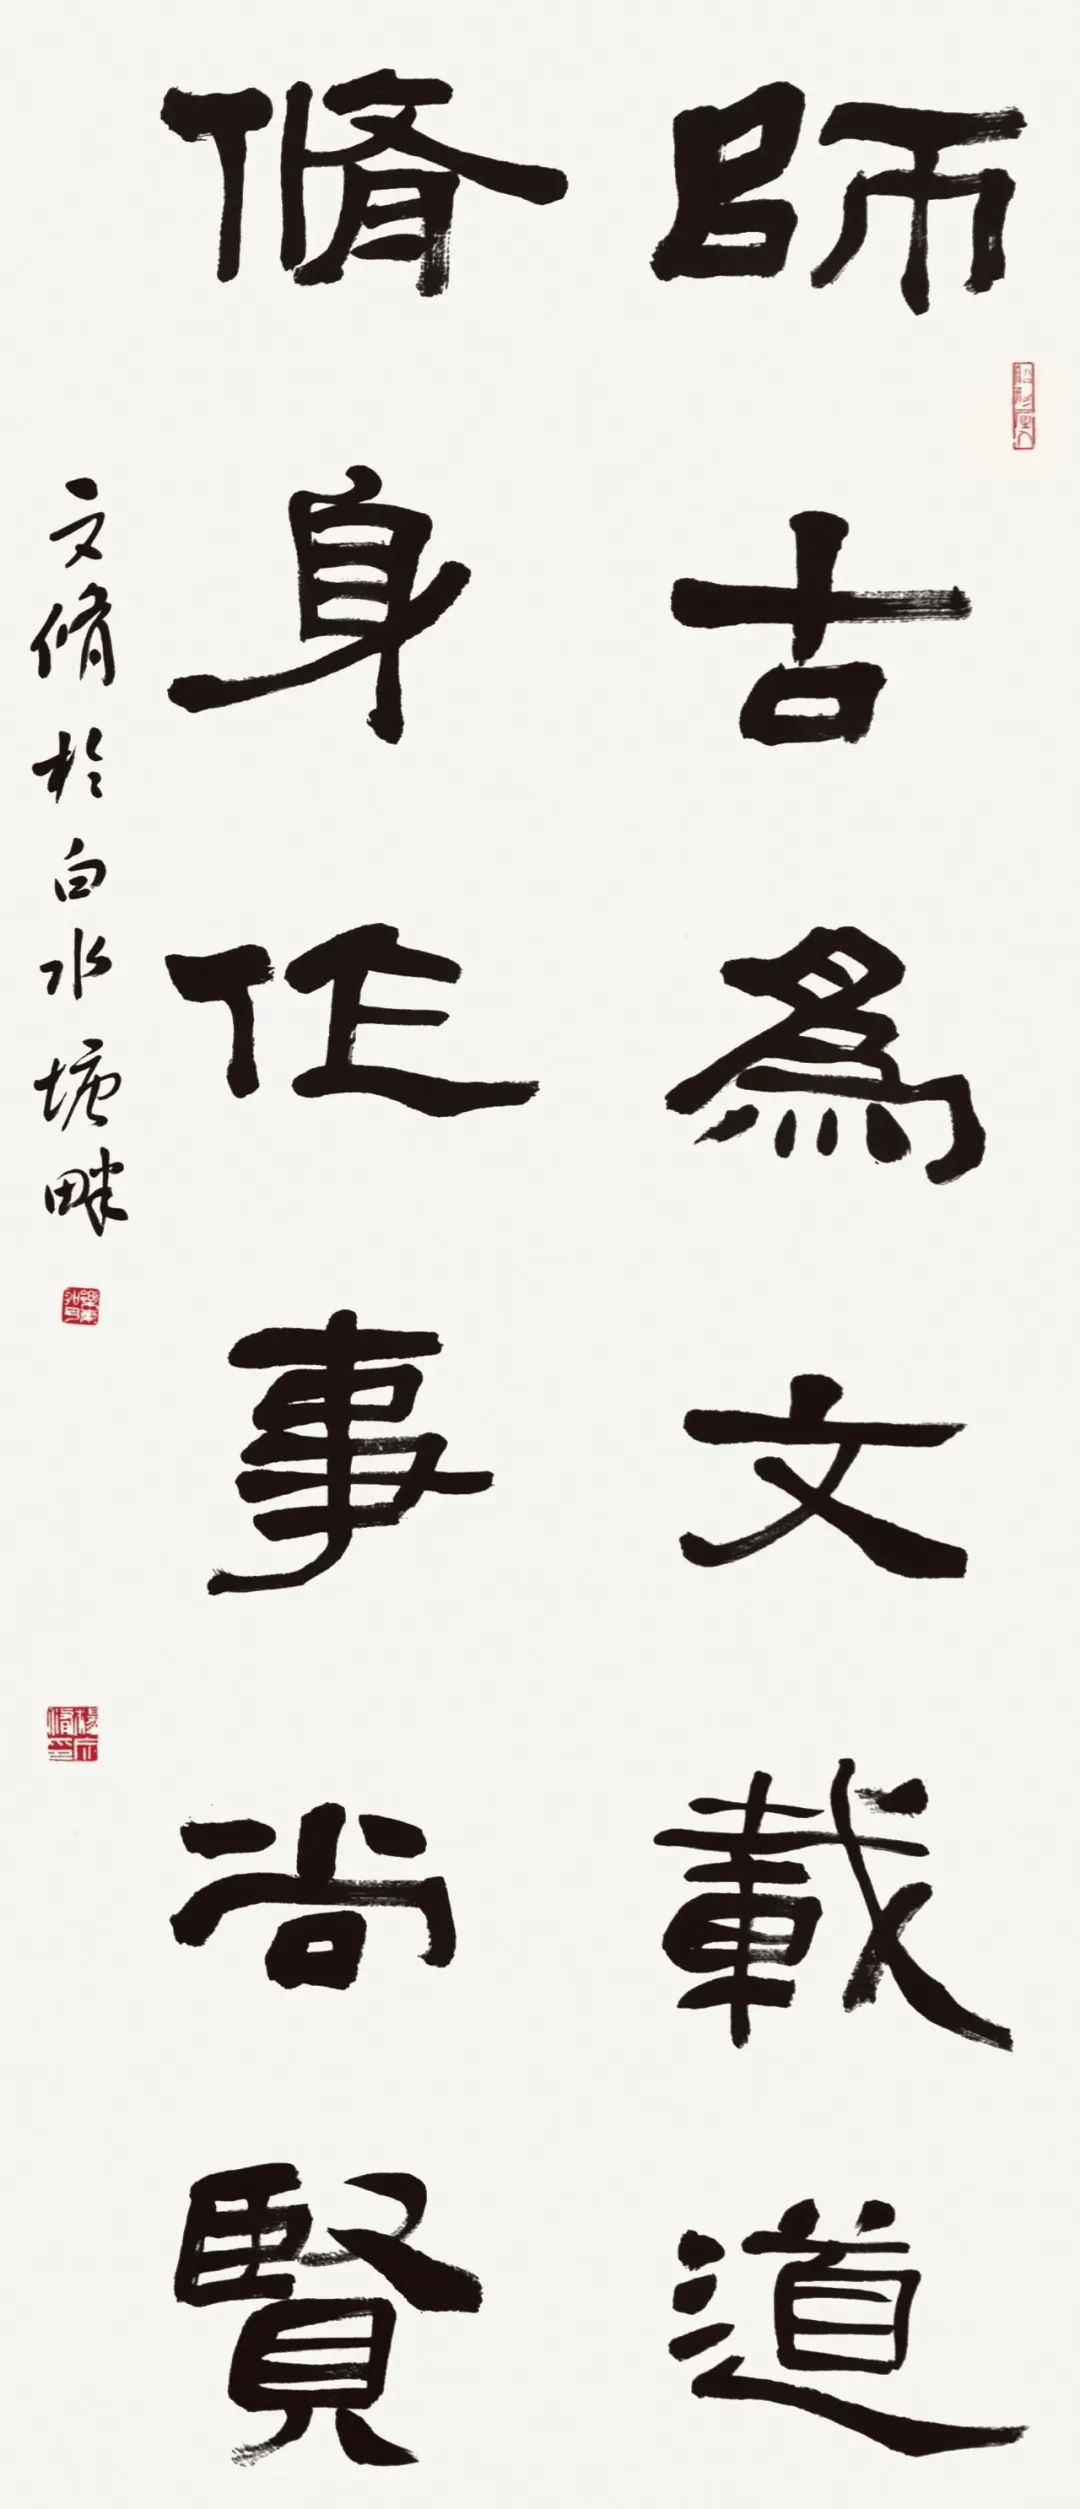 師古爲文載道
脩身作事尚賢
文脩於白水塘畔